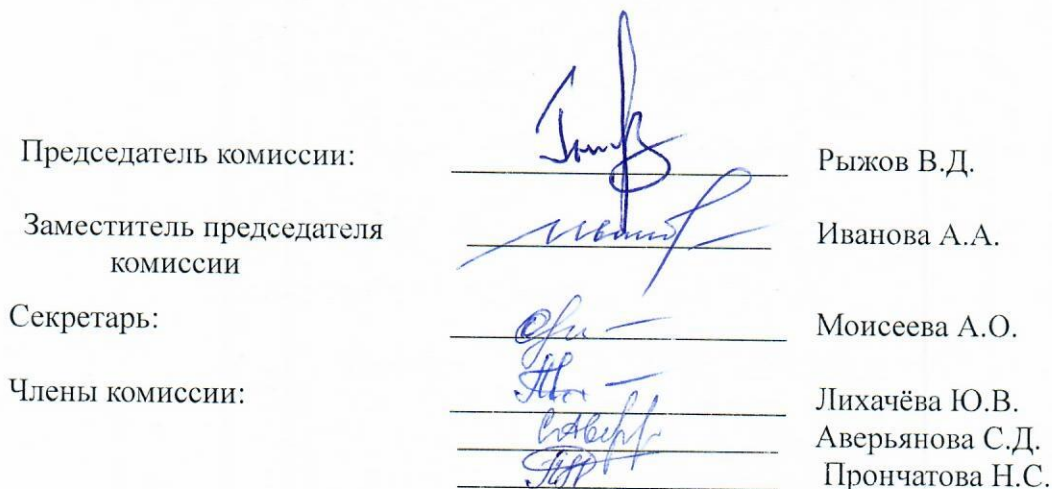 Председатель комиссии: Рыжов В.Д.
Заместитель председателя Иванова А.А.
комиссии
Секретарь: Моисеева А.О.
Члены комиссии: Лихачёва Ю.В.
Аверьянова С.Д.
Прончатова Н.С.